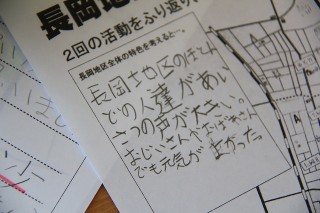 長岡地
2回の活動をふり返り
長岡地区全体の特色を考えると…
長岡地区のほとん
どの人達があい
さつの声が大きい。
おじいさんやおばあさん
でも元気がよかった